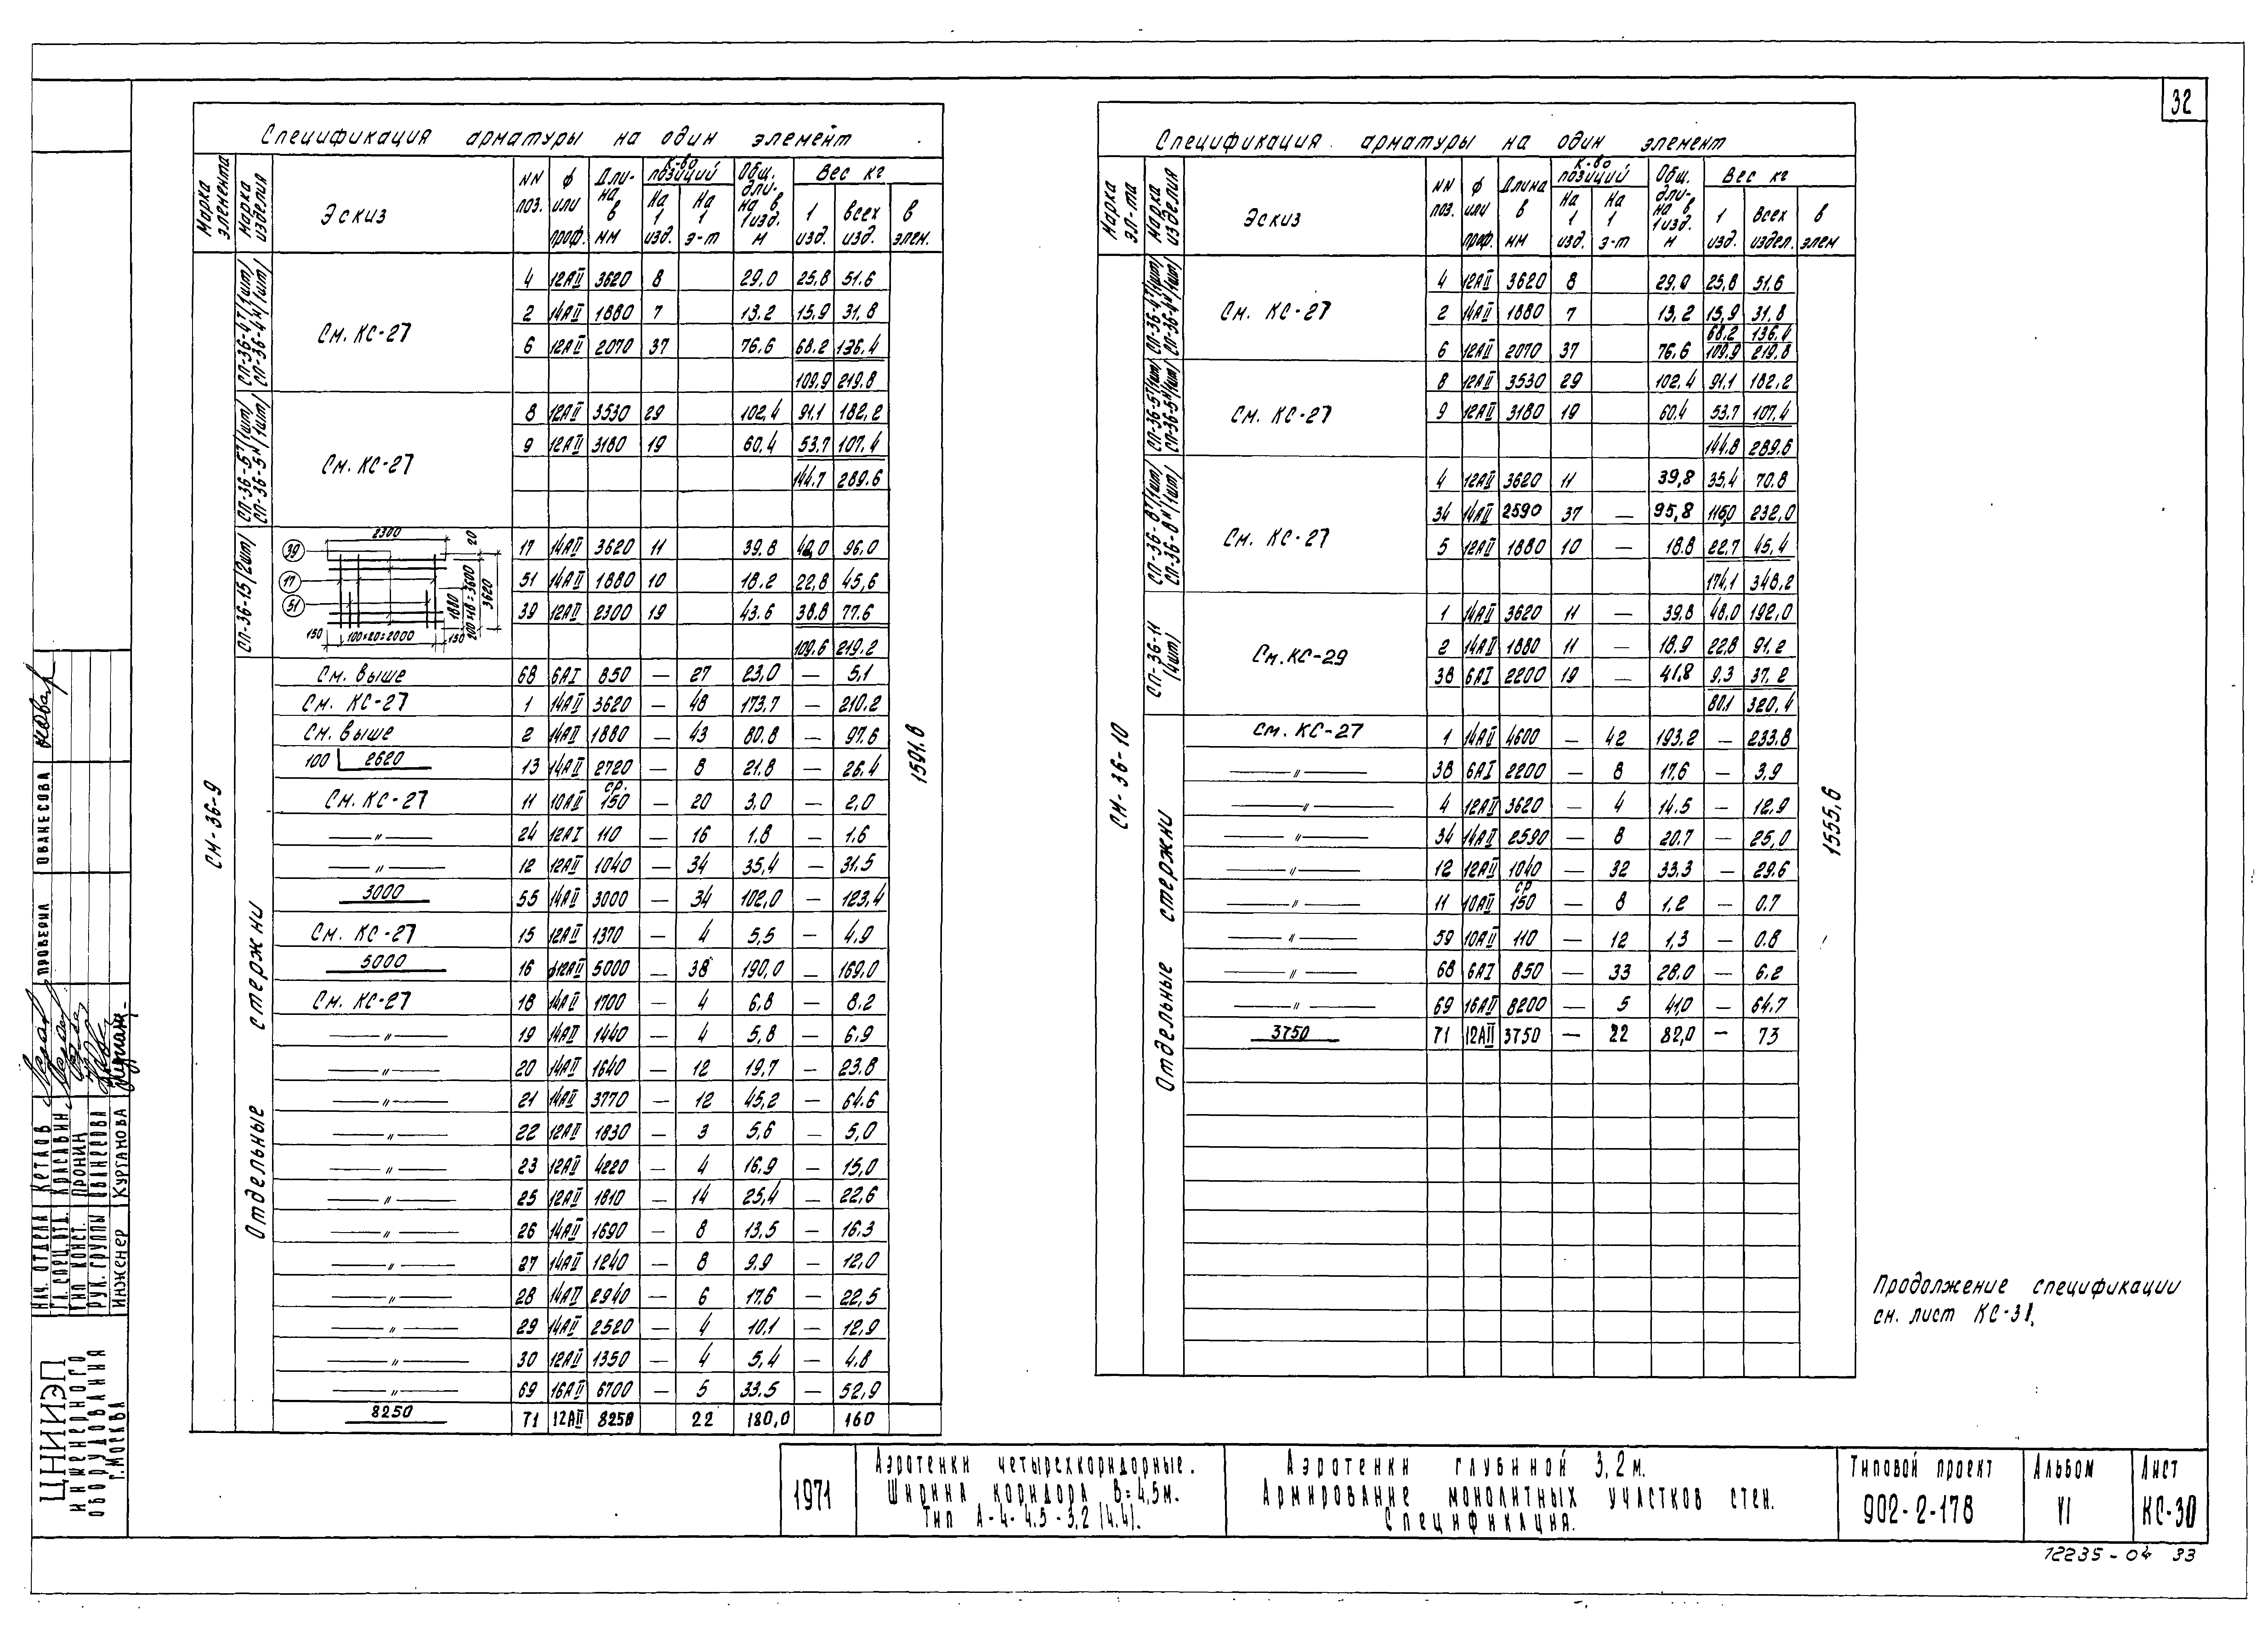 32
Спецификация арматуры на один элемент
Марка элемента
Марка изделия
Эскиз
NN поз.
ф или проф.
Длина в мм
К-во позиций
На 1 изд.
На 1 э-т
Общ. длина в 1 изд. м
Вес кг
1 изд.
всех изд.
в элем.
СМ-36-9
СП-36-4т (1шт)
СП-36-4н (1шт)
См. КС-27
4 12АII 3620 8 29,0 25,8 51.6
2 14АII 1880 7 13.2 15,9 31,8
6 12АII 2070 37 76.6 68.2 136.4
109.9 219.8
СП-36-5т (1шт)
СП-36-5н (1шт)
См. КС-27
8 12АII 3530 29 102,4 91,1 182,2
9 12АII 3180 19 60,4 53,7 107.4
144.7 289.6
СП-36-15 (2шт)
2300
20
39
17
51
1880
200×18=3600
3620
150
100×20=2000
150
17 14АII 3620 11 39.8 48,0 96.0
51 14АII 1880 10 18.2 22,8 45,6
39 12АII 2300 19 43.6 38.8 77.6
109.6 219.2
Отдельные стержни
См. выше 68 6АI 850 — 27 23,0 — 5,1
См. КС-27 1 14АII 3620 — 48 173.7 — 210.2
См. выше 2 14АII 1880 — 43 80.8 — 97.6
100 2620 13 14АII 2720 — 8 21.8 — 26.4
См. КС-27 11 10АII ср. 150 — 20 3.0 — 2,0
—"— 24 12АI 110 — 16 1.8 — 1.6
—"— 12 12АII 1040 — 34 35,4 — 31.5
3000 55 14АII 3000 — 34 102,0 — 123.4
См. КС-27 15 12АII 1370 — 4 5,5 — 4.9
5000 16 ф12АII 5000 — 38 190,0 — 169.0
См. КС-27 18 14АII 1700 — 4 6,8 — 8.2
—"— 19 14АII 1440 — 4 5,8 — 6.9
—"— 20 14АII 1640 — 12 19,7 — 23.8
—"— 21 14АII 3770 — 12 45,2 — 64.6
—"— 22 12АII 1830 — 3 5,6 — 5,0
—"— 23 12АII 4220 — 4 16.9 — 15,0
—"— 25 12АII 1810 — 14 25,4 — 22.6
—"— 26 14АII 1690 — 8 13,5 — 16.3
—"— 27 14АII 1240 — 8 9.9 — 12,0
—"— 28 14АII 2940 — 6 17.6 — 22,5
—"— 29 14АII 2520 — 4 10,1 — 12,9
—"— 30 12АII 1350 — 4 5,4 — 4.8
—"— 69 16АII 6700 — 5 33.5 — 52,9
8250 71 12АII 8250 22 180,0 160
1591.8
Спецификация арматуры на один элемент
Марка эл-та
Марка изделия
Эскиз
NN поз.
ф или проф.
Длина в мм
К-во позиций
На 1 изд.
На 1 э-т
Общ. длина в 1 изд. м
Вес кг
1 изд.
всех издел.
в элем
СМ-36-10
СП-36-4т (1шт)
СП-36-4н (1шт)
См. КС-27
4 12АII 3620 8 29,0 25,8 51,6
2 14АII 1880 7 13,2 15,9 31,8
6 12АII 2070 37 76,6 68.2 136.4
109.9 219.8
СП-36-5т (1шт)
СП-36-5н (1шт)
См. КС-27
8 12АII 3530 29 102.4 91,1 182.2
9 12АII 3180 19 60.4 53.7 107.4
144.8 289.6
СП-36-8т (1шт)
СП-36-8н (1шт)
См. КС-27
4 12АII 3620 11 39,8 35,4 70.8
34 14АII 2590 37 — 95,8 116,0 232,0
5 12АII 1880 10 — 18.8 22.7 45,4
174,1 348,2
СП-36-11 (4шт)
См. КС-29
1 14АII 3620 11 — 39.8 48,0 192,0
2 14АII 1880 11 — 18.9 22.8 91,2
38 6АI 2200 19 — 41,8 9,3 37,2
80.1 320,4
Отдельные стержни
См. КС-27 1 14АII 4600 — 42 193.2 — 233.8
—"— 38 6АI 2200 — 8 17,6 — 3,9
—"— 4 12АII 3620 — 4 14.5 — 12.9
—"— 34 14АII 2590 — 8 20.7 — 25,0
—"— 12 12АII 1040 — 32 33.3 — 29.6
—"— 11 10АII ср 150 — 8 1,2 — 0.7
—"— 59 10АII 110 — 12 1,3 — 0.8
—"— 68 6АI 850 — 33 28.0 — 6.2
—"— 69 16АII 8200 — 5 41,0 — 64.7
3750 71 12АII 3750 — 22 82,0 — 73
1555,6
Продолжение спецификации
см. лист КС-31.
Проверил Ованесова
Нач. отдела Кетаов
Гл. спец. отд. Красавин
Гип конст. Пронин
Рук. группы Ованесова
Инженер Курганова
ЦНИИЭП
инженерного
оборудования
г. Москва
1971
Аэротенки четырехкоридорные.
Ширина коридора В=4,5м.
Тип А-4-4.5-3,2 (4.4).
Аэротенки глубиной 3,2м.
Армирование монолитных участков стен.
Спецификация.
Типовой проект
902-2-178
Альбом
VI
Лист
КС-30
12235-04 33